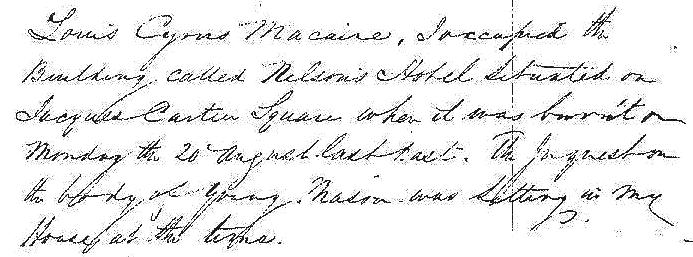 Louis Cyrus Macaire, I occupied the
Building called Nelson's Hotel Situated on
Jacques Cartier Square when it was burn't on
Monday the 20 August last past. The Inquest on
the body of young Mason was Sitting in my
House at the time.